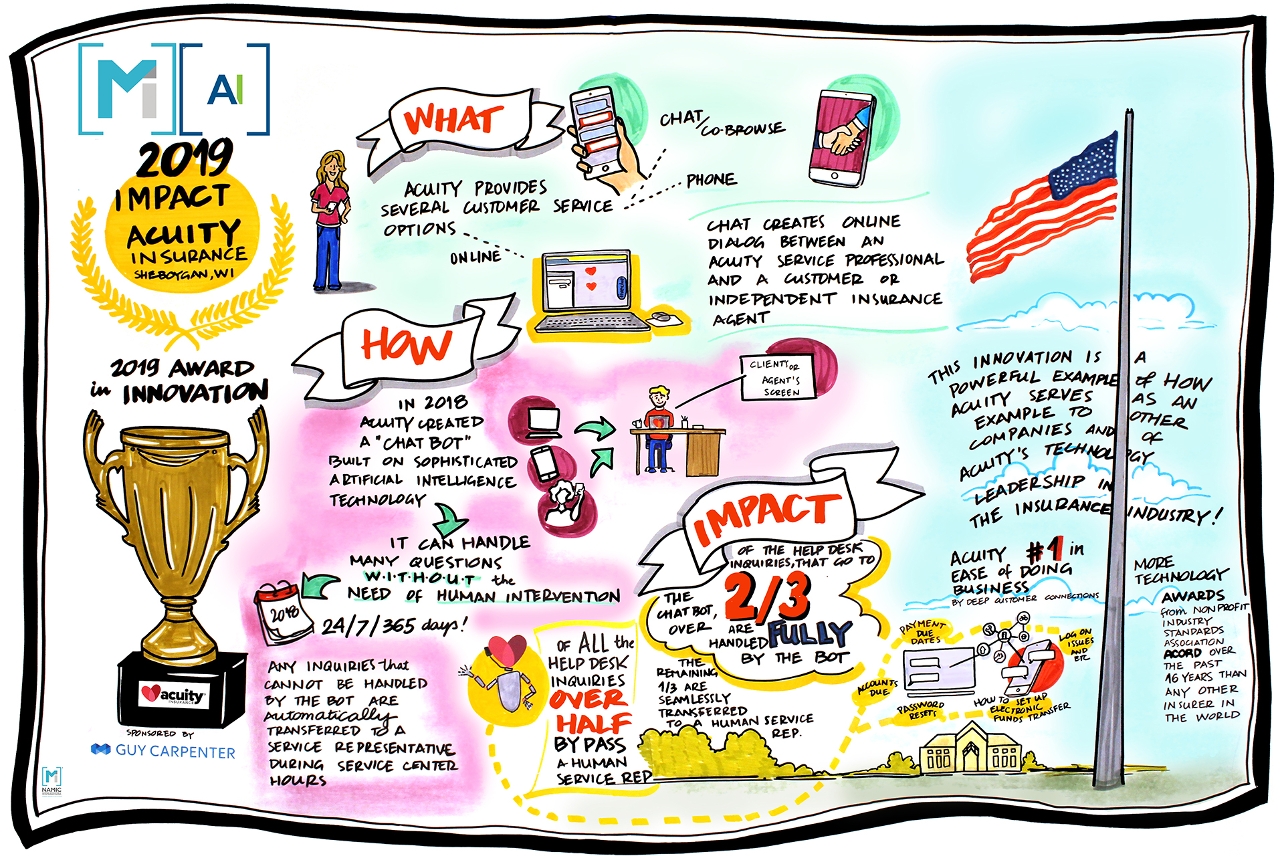 Mi AI
2019
IMPACT
ACUITY
INSURANCE
SHEBOYGAN, WI
2019 AWARD
in INNOVATION
acuity
INSURANCE
SPONSORED BY
GUY CARPENTER
Mi
NAMIC
WHAT
ACUITY PROVIDES
SEVERAL CUSTOMER SERVICE
OPTIONS
CHAT/CO-BROWSE
PHONE
ONLINE
CHAT CREATES ONLINE
DIALOG BETWEEN AN
ACUITY SERVICE PROFESSIONAL
AND A CUSTOMER OR
INDEPENDENT INSURANCE
AGENT
HOW
IN 2018
ACUITY CREATED
A "CHAT BOT"
BUILT ON SOPHISTICATED
ARTIFICIAL INTELLIGENCE
TECHNOLOGY
CLIENT/OR
AGENT'S
SCREEN
IT CAN HANDLE
MANY QUESTIONS
W·I·T·H·O·U·T the
NEED OF HUMAN INTERVENTION
2018
24/7/365 days!
ANY INQUIRIES that
CANNOT BE HANDLED
BY THE BOT ARE
automatically
TRANSFERRED TO A
SERVICE REPRESENTATIVE
DURING SERVICE CENTER
HOURS
OF ALL the
HELP DESK
INQUIRIES
OVER
HALF
BY PASS
A HUMAN
SERVICE REP
IMPACT
OF THE HELP DESK
INQUIRIES, THAT GO TO
THE
CHAT BOT,
OVER
2/3
ARE
HANDLED FULLY
BY THE BOT
THE
REMAINING
1/3 ARE
SEAMLESSLY
TRANSFERRED
TO A HUMAN SERVICE
REP.
THIS INNOVATION IS A
POWERFUL EXAMPLE of HOW
ACUITY SERVES AS AN
EXAMPLE TO OTHER
COMPANIES AND OF
ACUITY'S TECHNOLOGY
LEADERSHIP IN
THE INSURANCE INDUSTRY!
ACUITY #1 in
EASE of DOING
BUSINESS
BY DEEP CUSTOMER CONNECTIONS
PAYMENT
DUE
DATES
LOG ON
ISSUES
AND
ETC.
ACCOUNTS
DUE
PASSWORD
RESETS
HOW TO SET UP
ELECTRONIC
FUNDS TRANSFER
MORE
TECHNOLOGY
AWARDS
from NONPROFIT
INDUSTRY
STANDARDS
ASSOCIATION
ACORD OVER
THE PAST
16 YEARS THAN
ANY OTHER
INSURER IN
THE WORLD